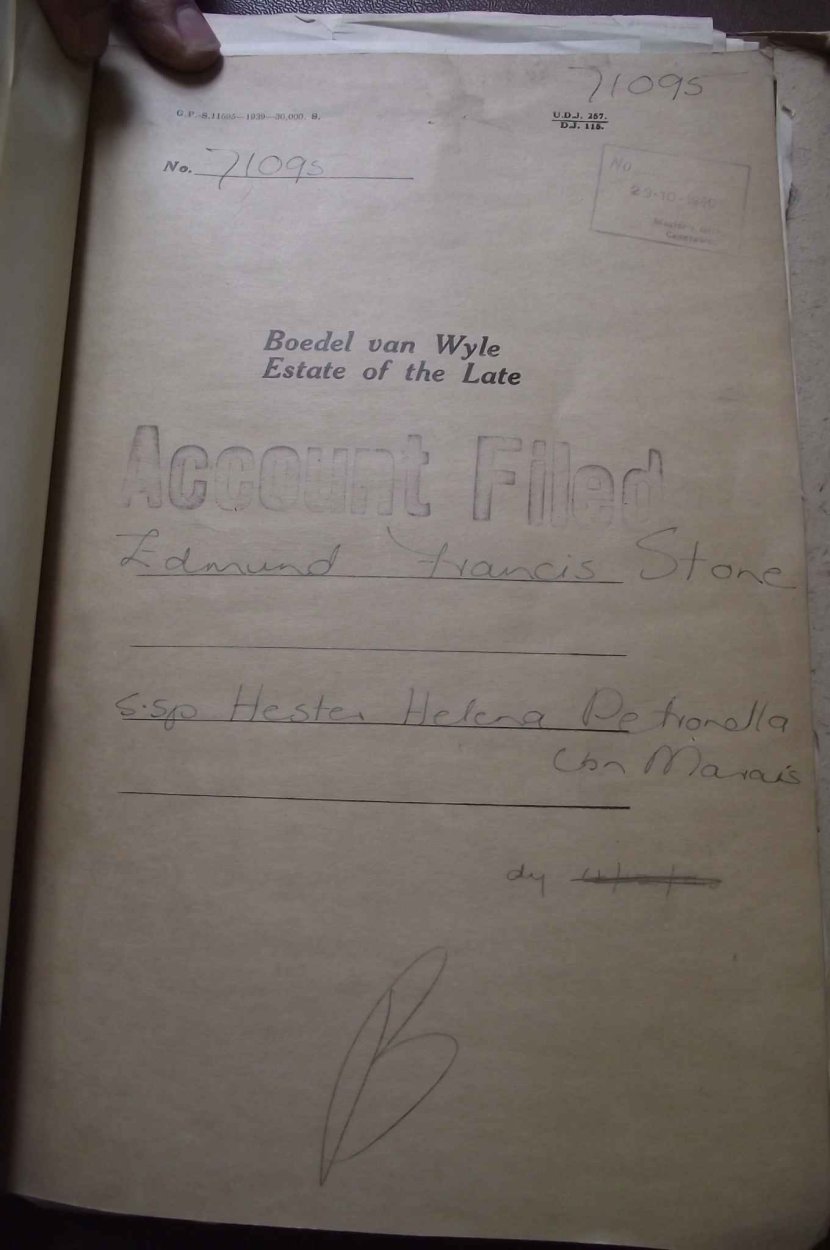 71095
G.P.-S.11695—1939—30,000. S.
U.D.J. 257.
D.J. 115.
No. 71095
No
23-10-1940
Boedel van Wyle
Estate of the Late
Account Filed
Edmund Francis Stone
S.sp Hester Helena Petronella
bn Marais
dy
B